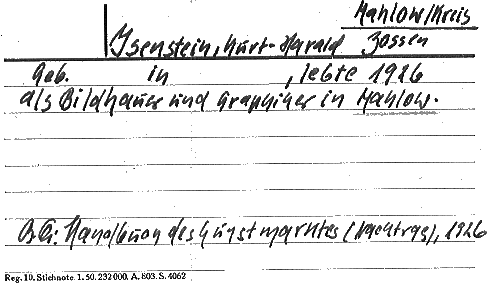 Mahlow/Kreis
Isenstein, Kurt-Harald Zossen
Geb. in , lebte 1926
als Bildhauer und Graphiker in Mahlow.
B.Qi: Handbuch des Kunstmarktes (Nachtrag), 1926
Reg. 10. Stichnote. 1. 50. 232 000. A. 803. S. 4062